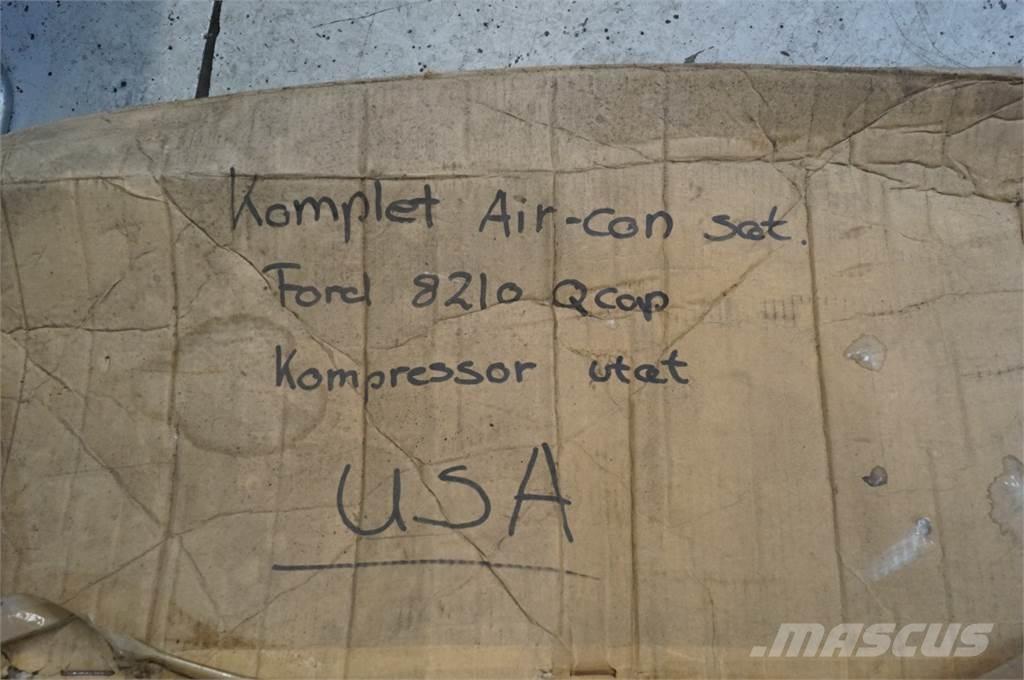 Komplet Air-con sæt.
Ford 8210 Qcap
Kompressor utæt
USA
.MASCUS